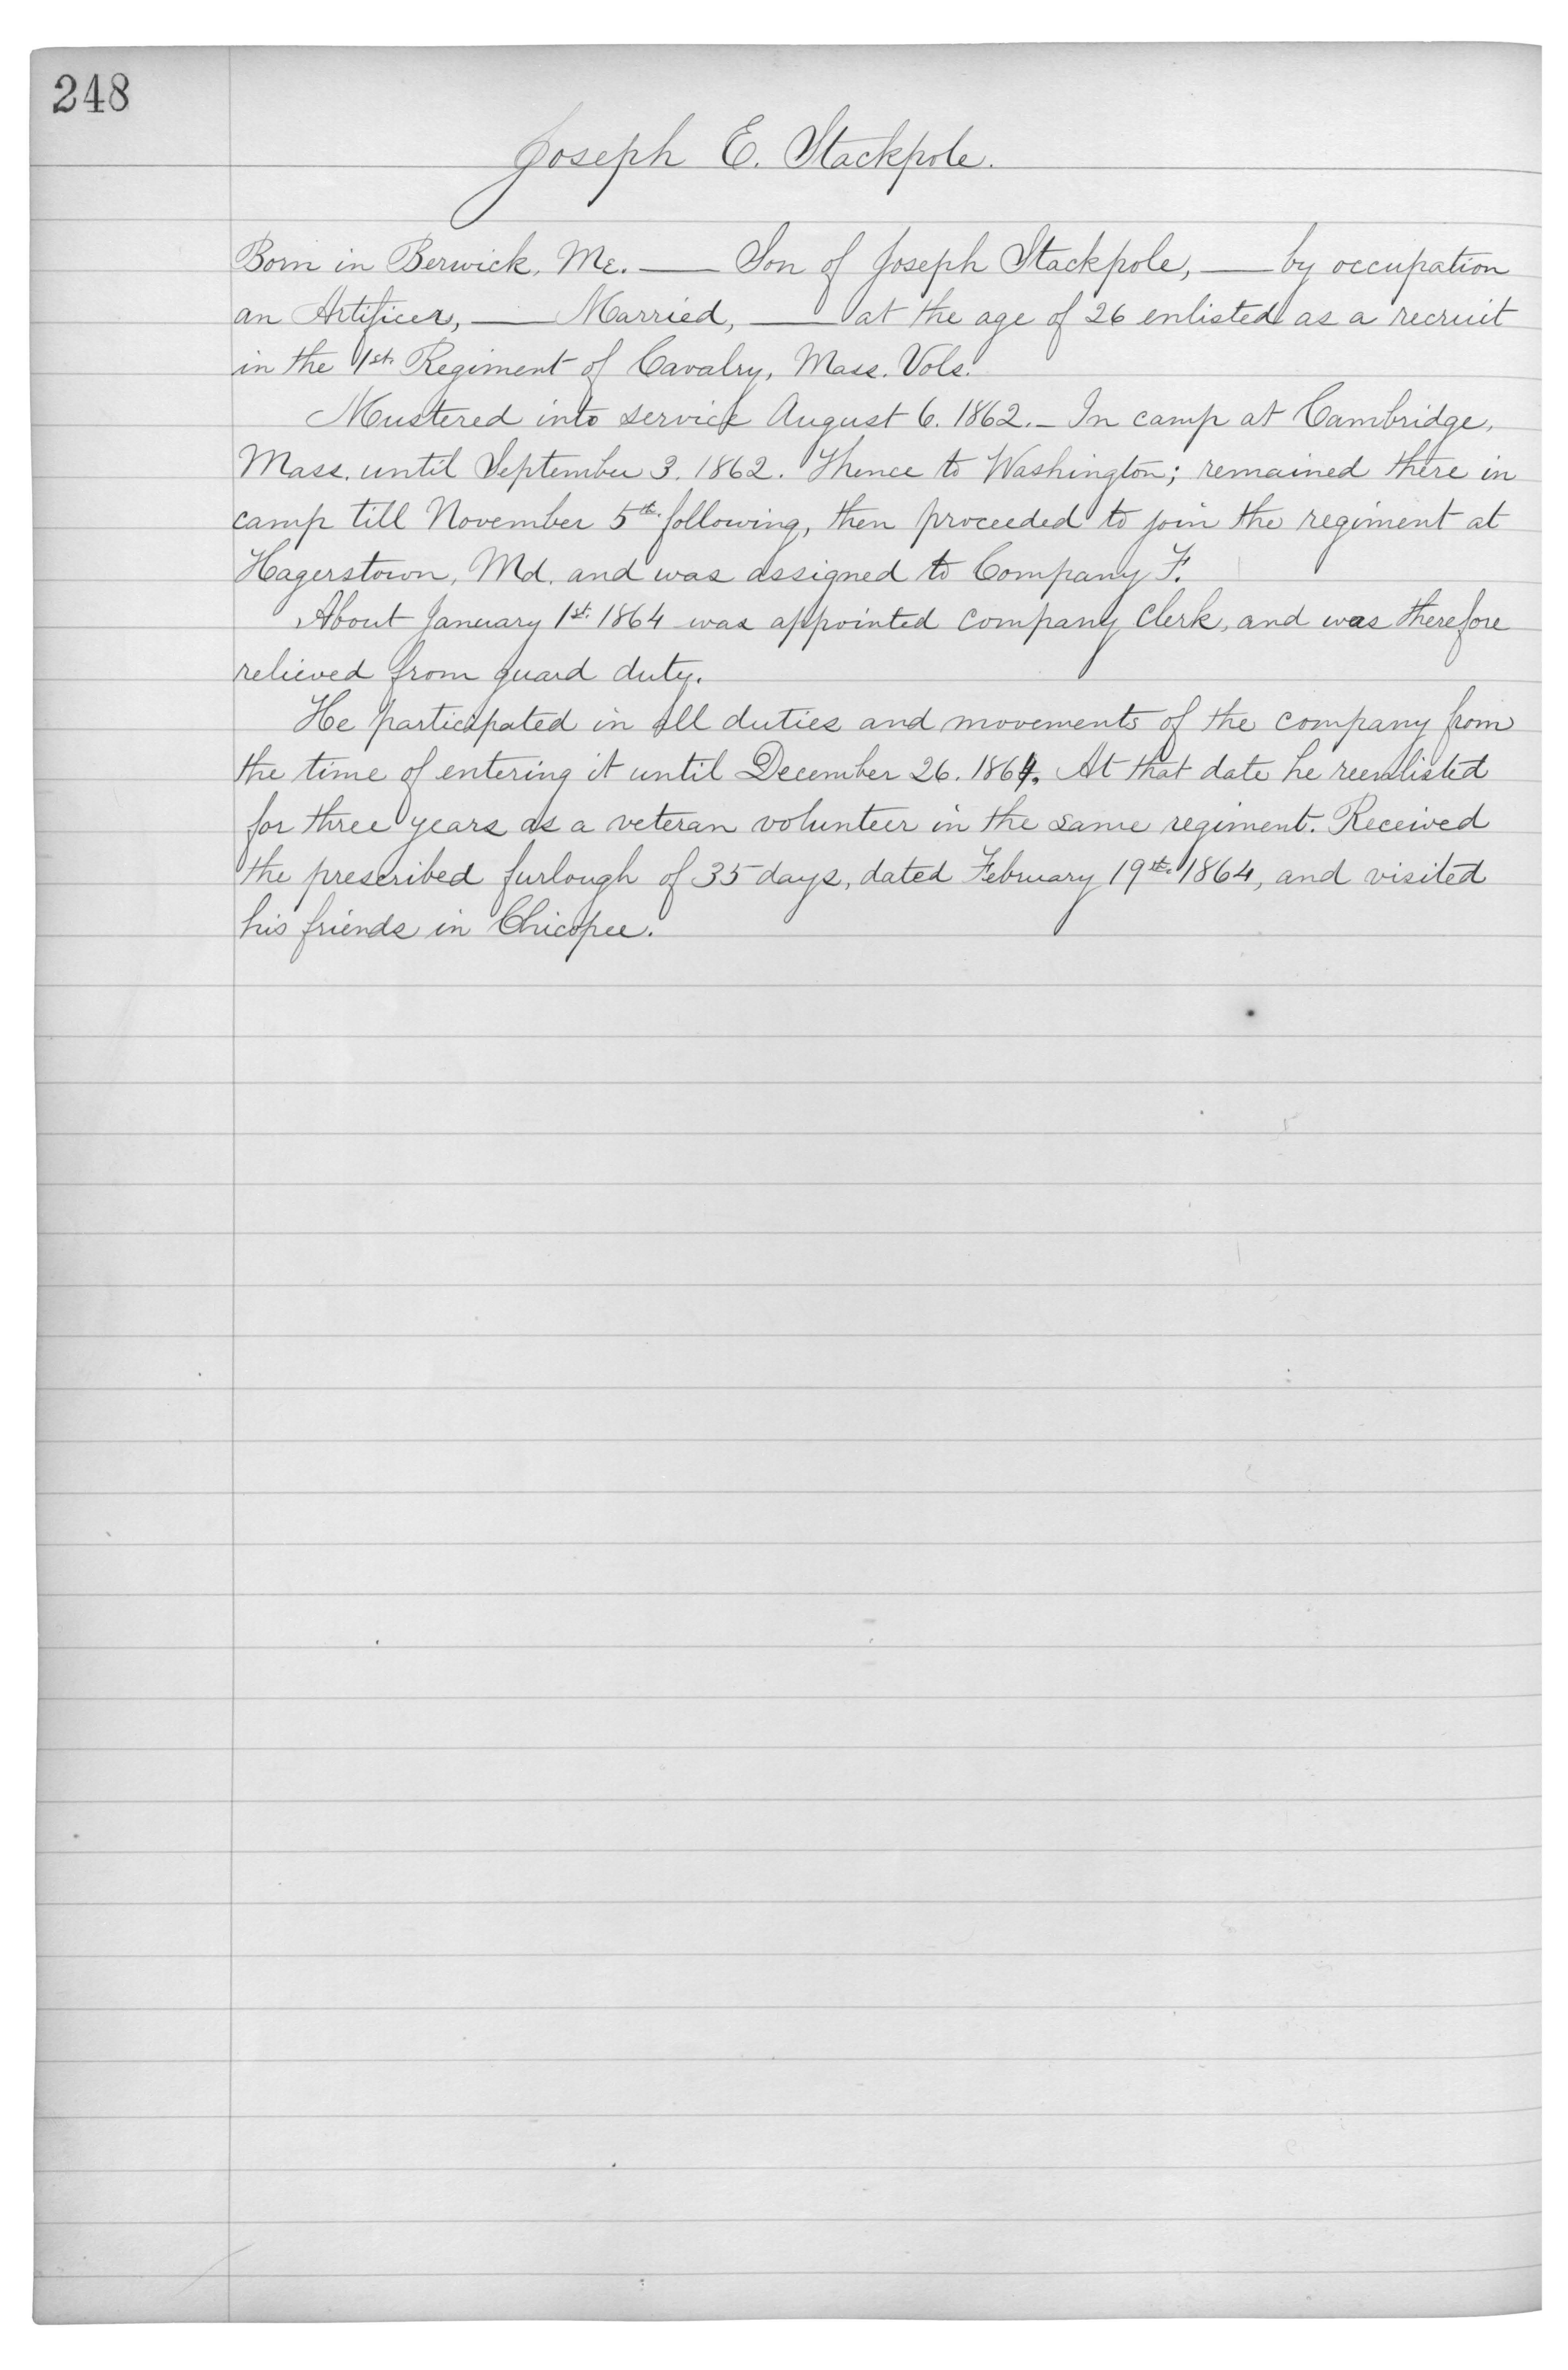 248
Joseph E. Stackpole.
Born in Berwick, Me. — Son of Joseph Stackpole, — by occupation
an Artificer, — Married, — at the age of 26 enlisted as a recruit
in the 1st. Regiment of Cavalry, Mass. Vols.
Mustered into service August 6. 1862. – In camp at Cambridge,
Mass. until September 3. 1862. Thence to Washington; remained there in
camp till November 5th. following, then proceeded to join the regiment at
Hagerstown, Md. and was assigned to Company F.
About January 1st. 1864 was appointed company clerk, and was therefore
relieved from guard duty.
He participated in all duties and movements of the company from
the time of entering it until December 26. 1864. At that date he reenlisted
for three years as a veteran volunteer in the same regiment. Received
the prescribed furlough of 35 days, dated February 19th. 1864, and visited
his friends in Chicopee.